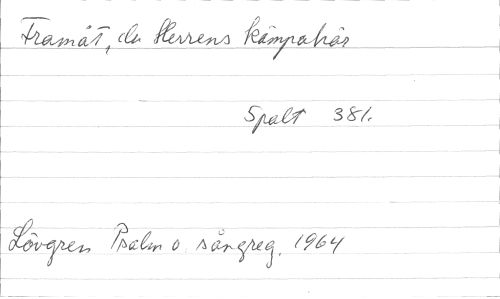 Framåt, du Herrens kämpahär
Spalt 381.
Lövgren Psalm o. sångreg. 1964